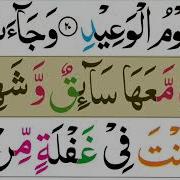 وْمُ الْوَعِيدِ ۝٢٠ وَجَآءَ
مَّعَهَا سَآئِقٌ وَّ شَهِ
نْتَ فِىْ غَفْلَةٍ مِّن